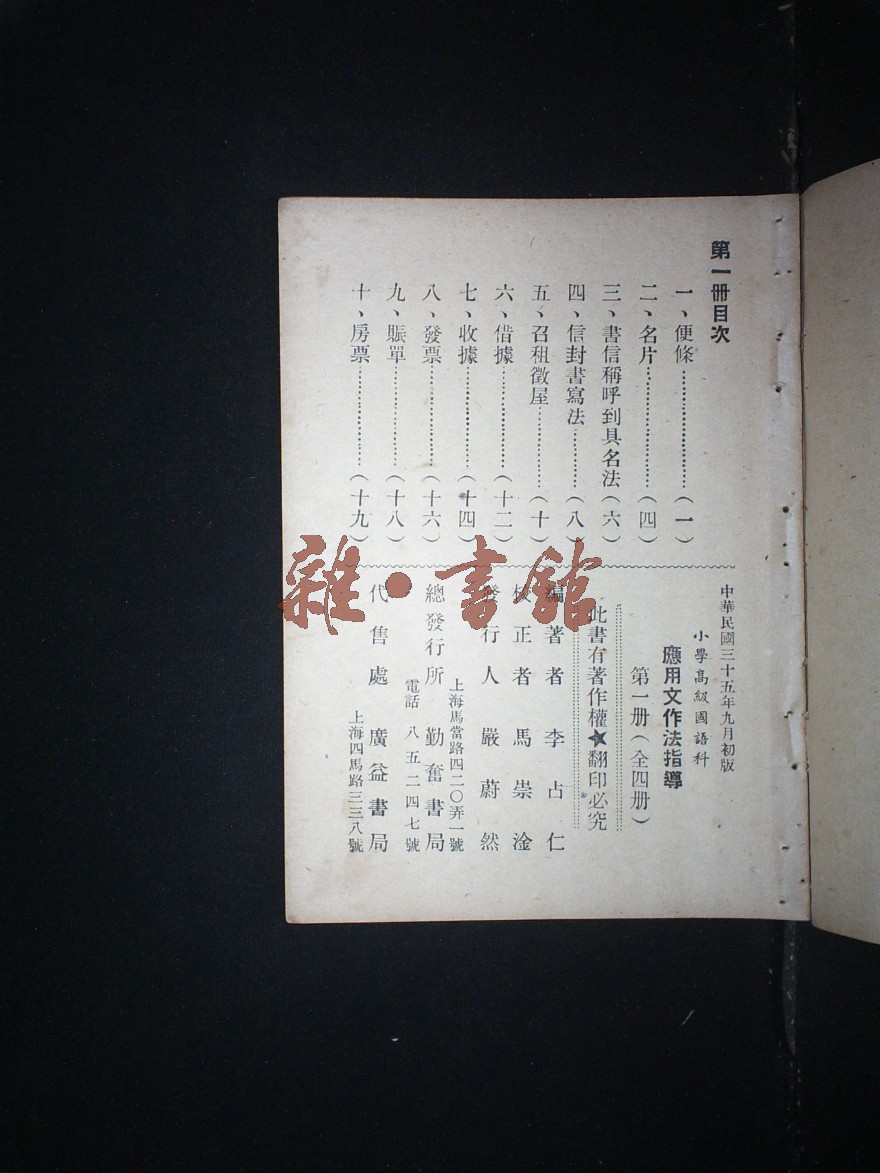 第一冊目次
一、便條………………(一)
二、名片………………(四)
三、書信稱呼到具名法(六)
四、信封書寫法………(八)
五、召租徵屋…………(十)
六、借據………………(十二)
七、收據………………(十四)
八、發票………………(十六)
九、賬單………………(十八)
十、房票………………(十九)
中華民國三十五年九月初版
小學高級國語科
應用文作法指導
第一冊(全四冊)
此書有著作權★翻印必究
編著者 李占仁
校正者 馬崇淦
發行人 嚴蔚然
上海馬當路四二〇弄一號
總發行所 勤奮書局
電話 八五二四七號
代售處 廣益書局
上海四馬路三三八號
雜·書館